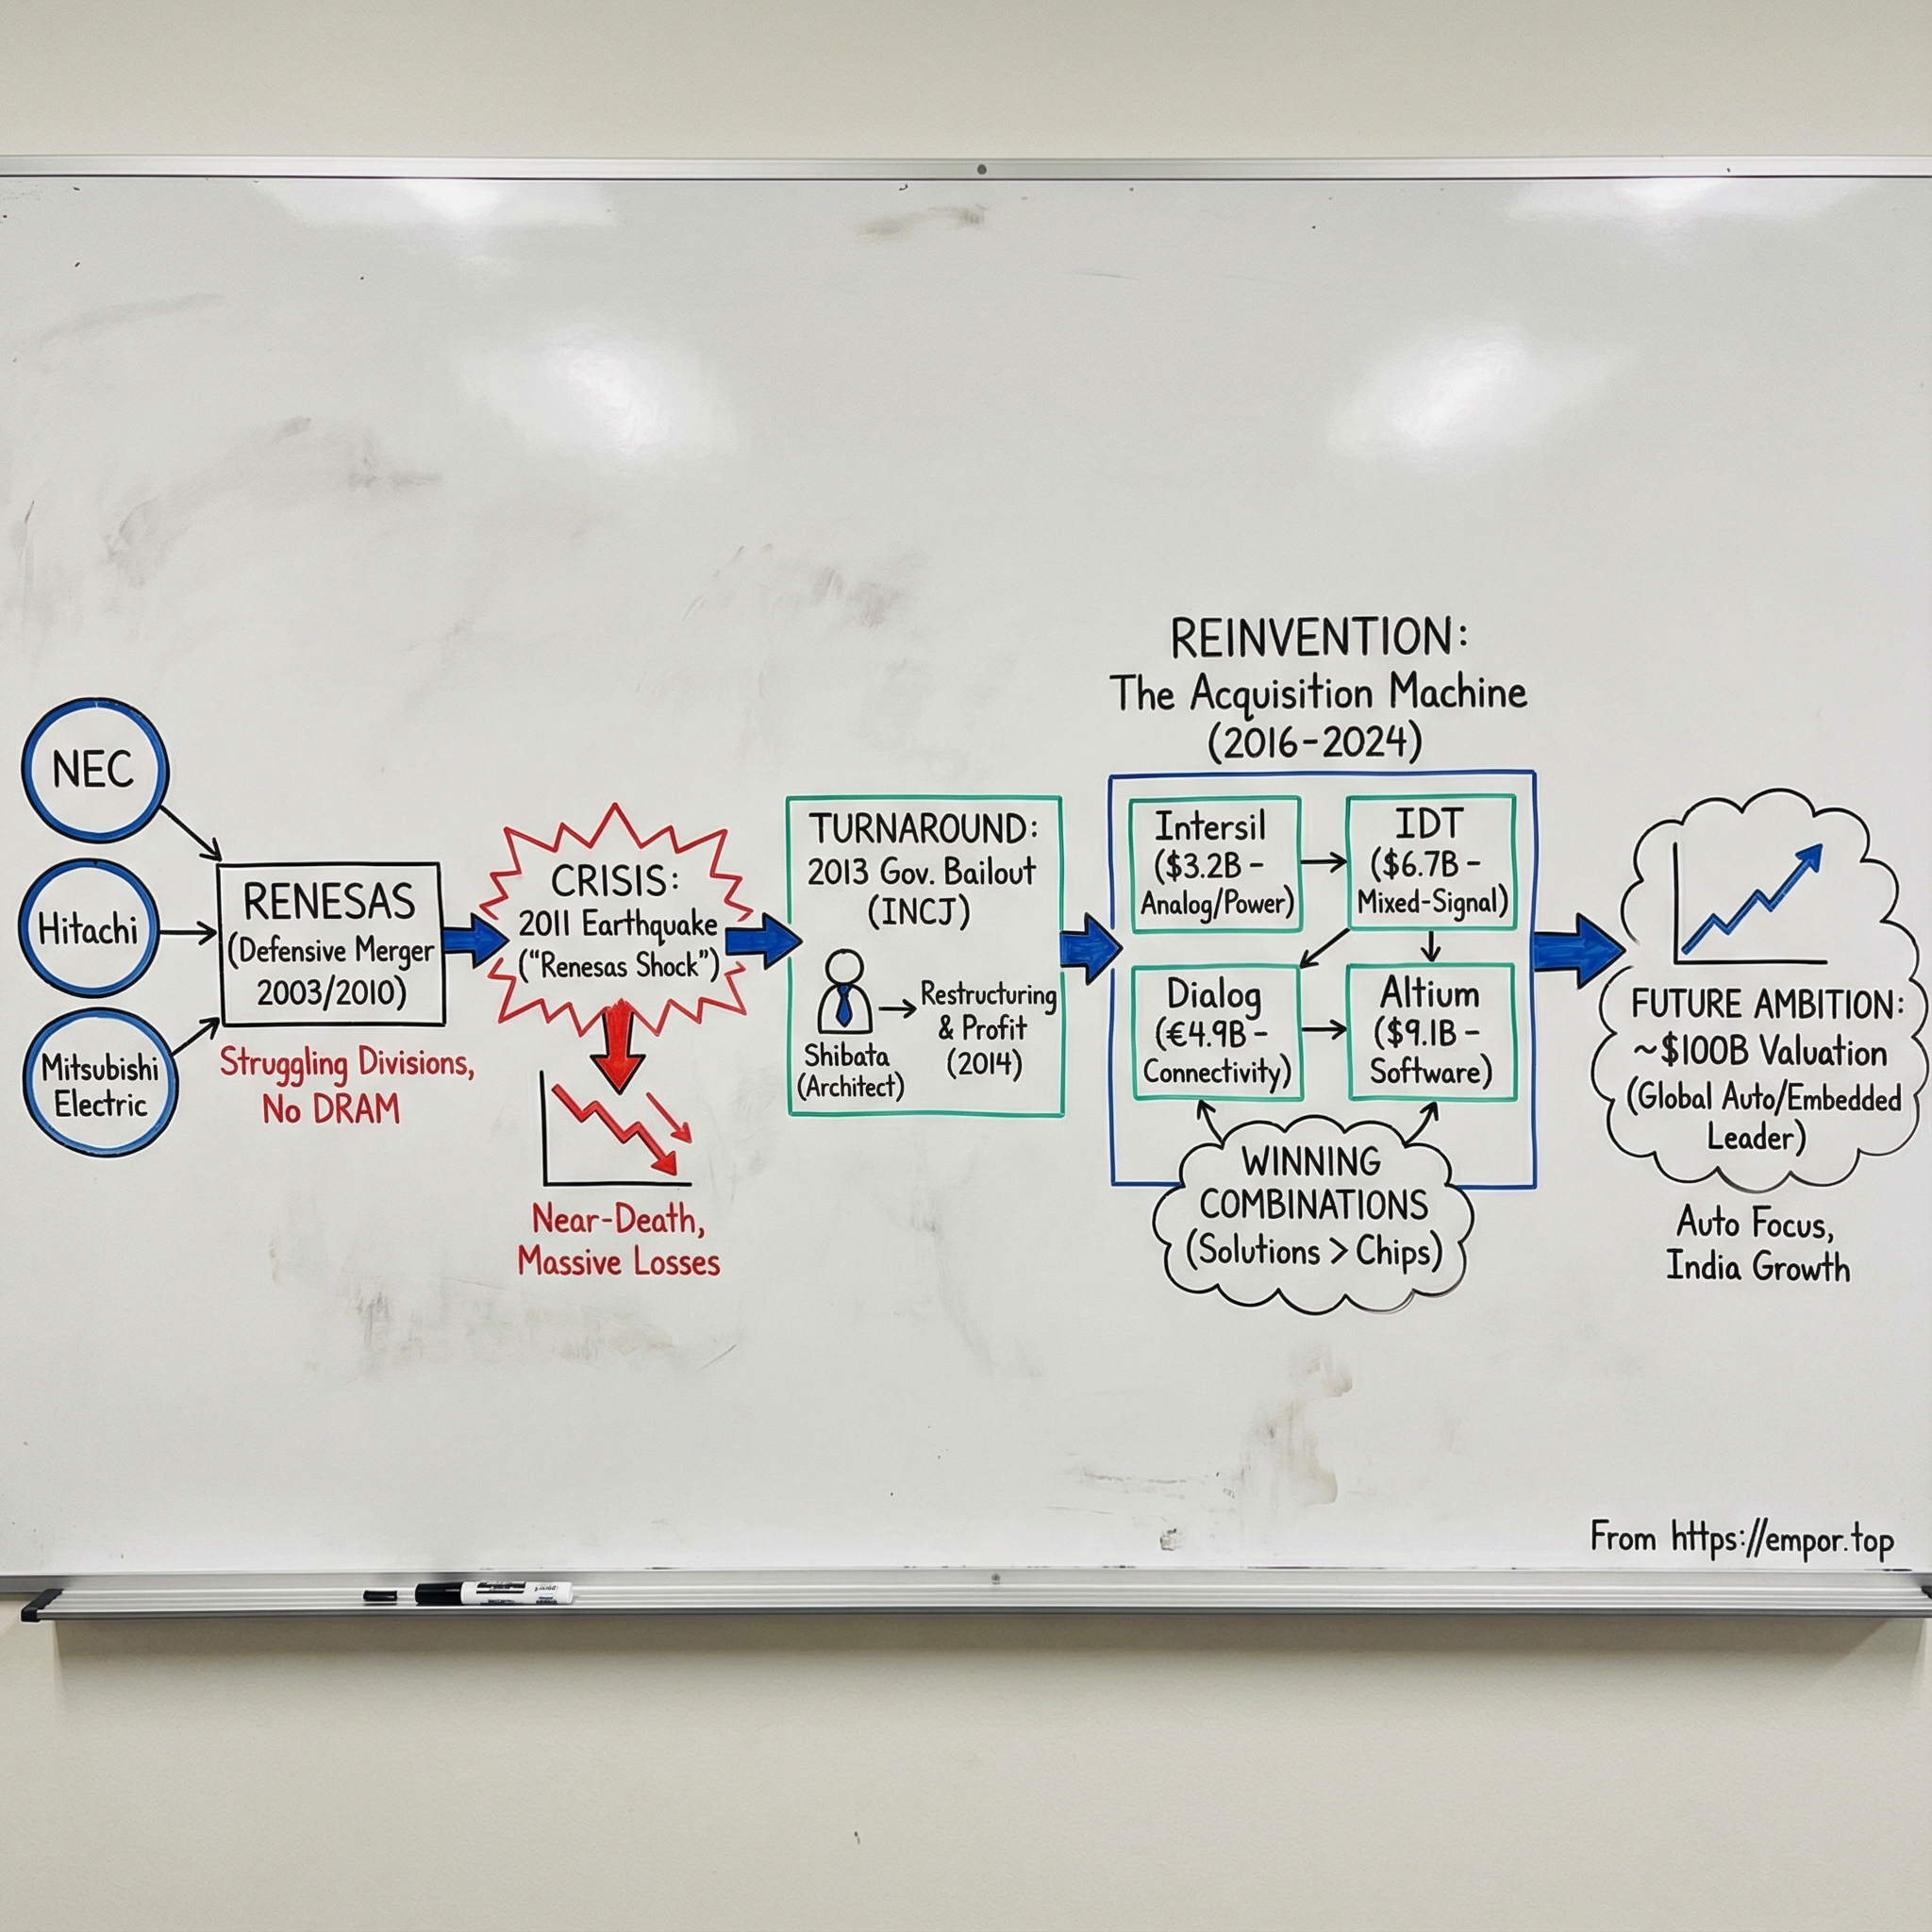 NEC
Hitachi
Mitsubishi
Electric
RENESAS
(Defensive Merger
2003/2010)
Struggling Divisions,
No DRAM
CRISIS:
2011 Earthquake
("Renesas Shock")
Near-Death,
Massive Losses
TURNAROUND:
2013 Gov. Bailout
(INCJ)
Shibata
(Architect)
Restructuring
& Profit
(2014)
REINVENTION:
The Acquisition Machine
(2016-2024)
Intersil
($3.2B -
Analog/Power)
IDT
($6.7B -
Mixed-Signal)
Dialog
(€4.9B -
Connectivity)
Altium
($9.1B -
Software)
WINNING
COMBINATIONS
(Solutions > Chips)
FUTURE AMBITION:
~$100B Valuation
(Global Auto/Embedded
Leader)
Auto Focus,
India Growth
From https://empor.top